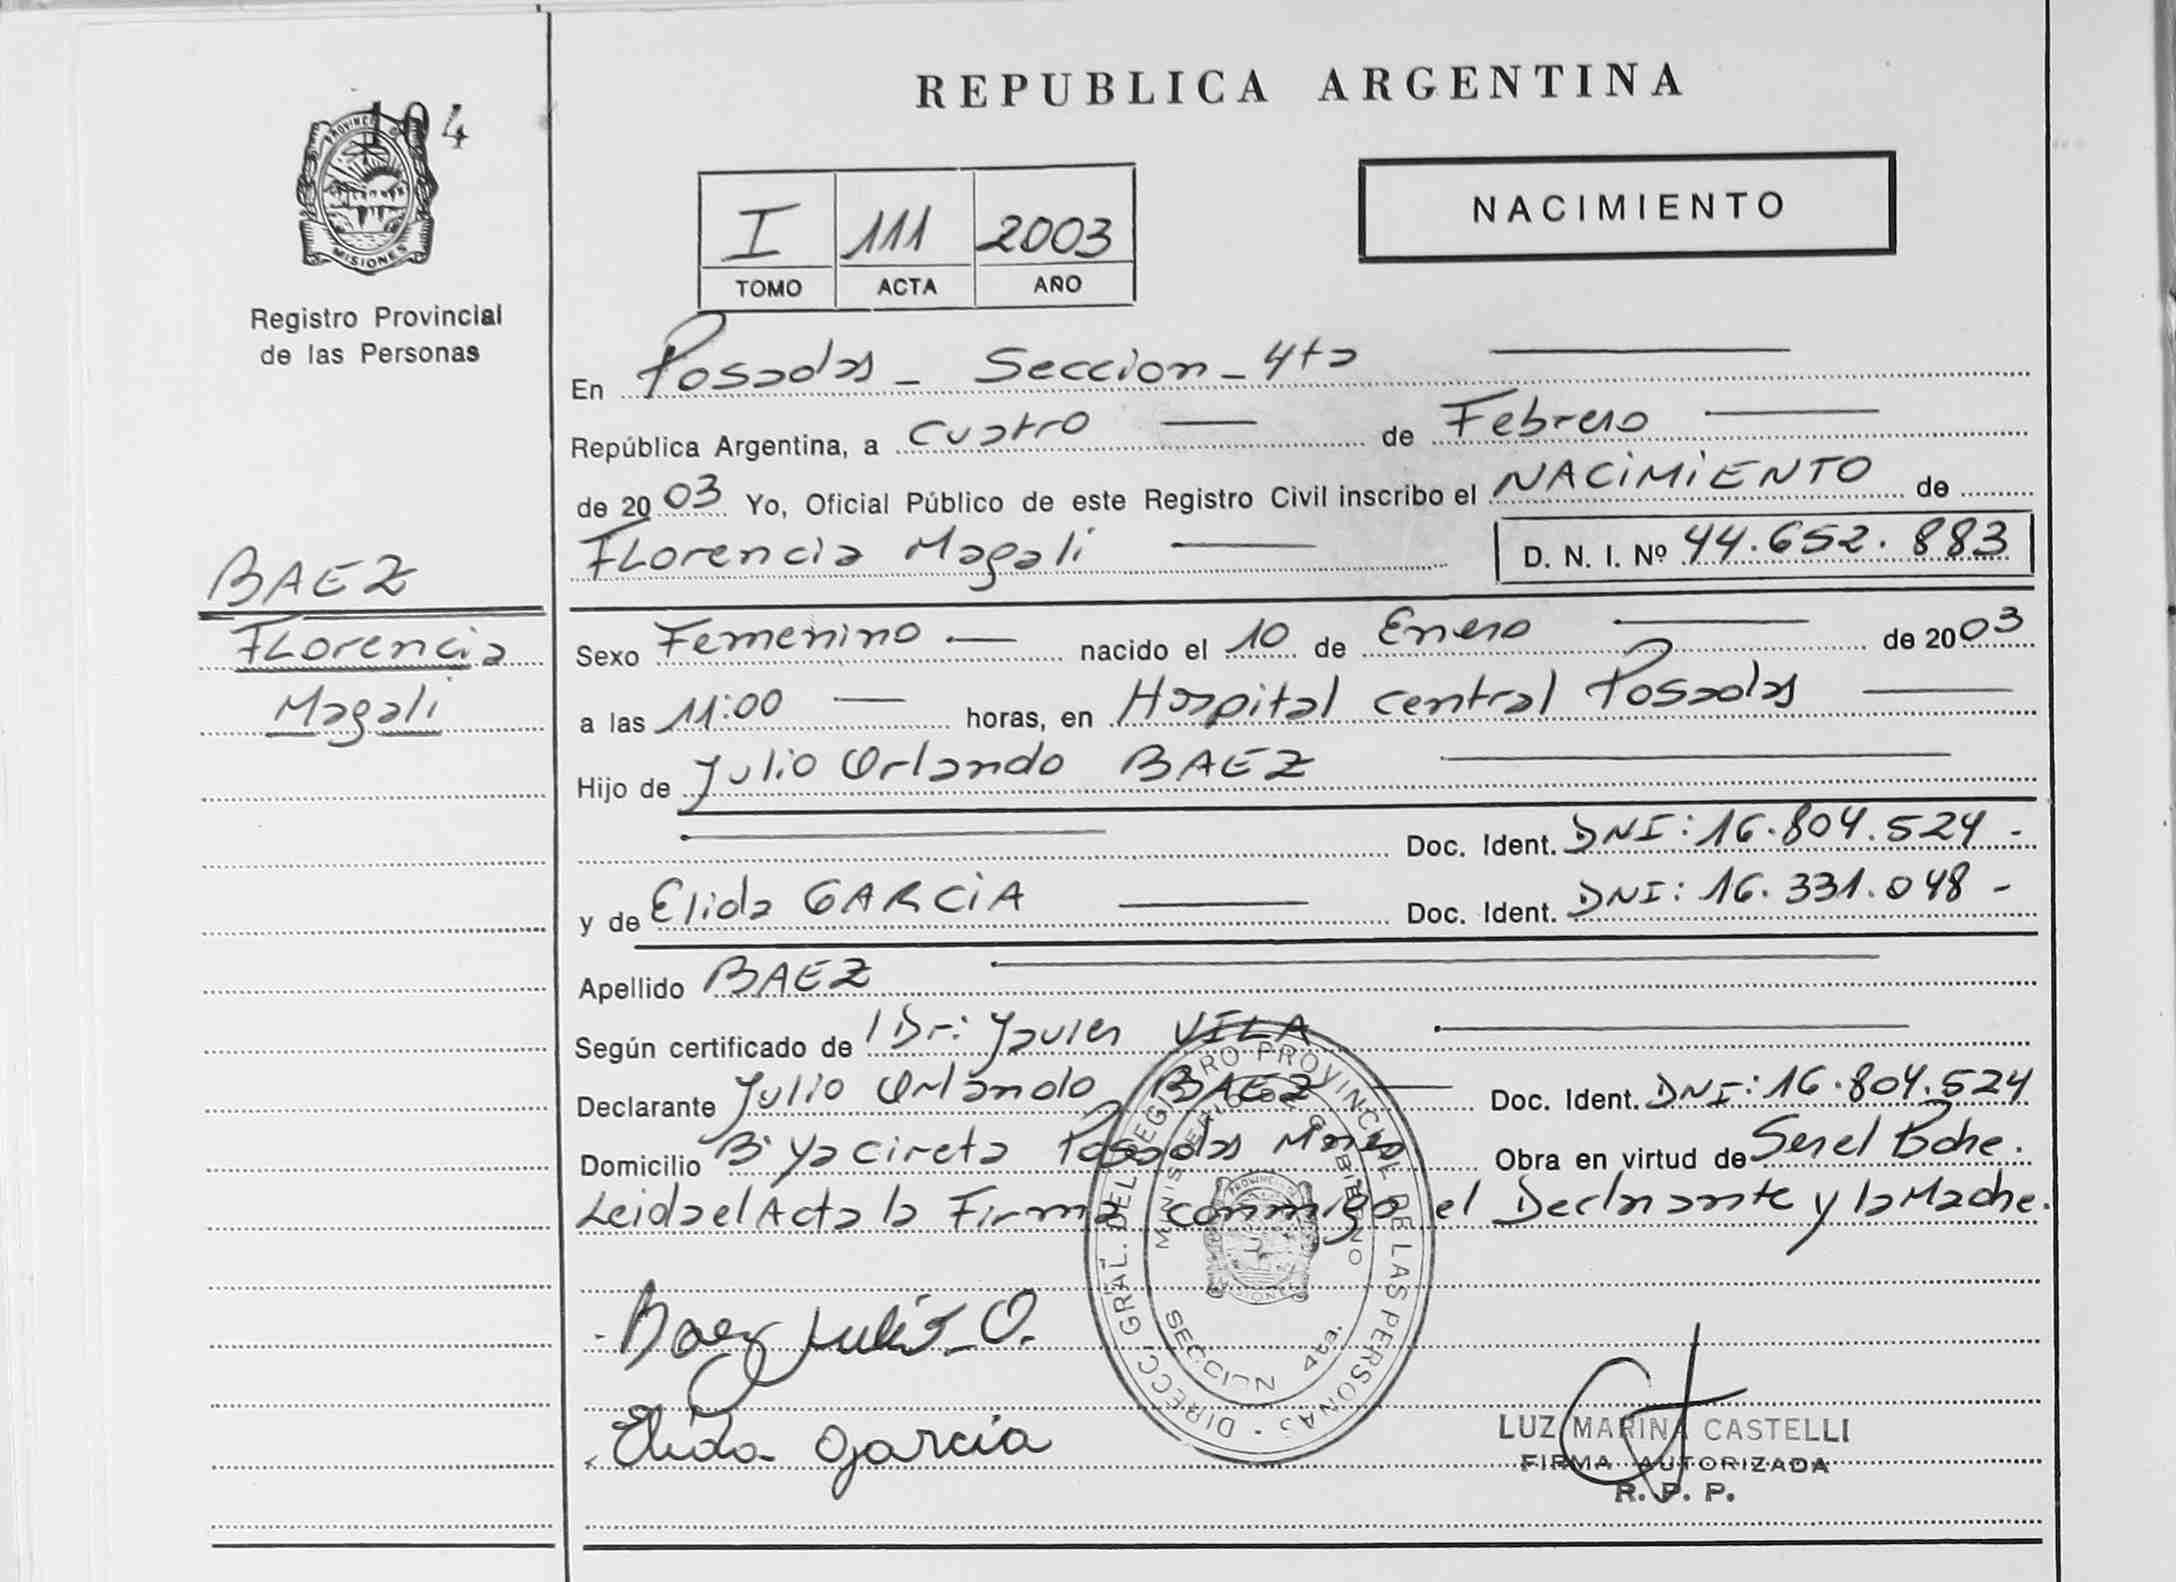 REPUBLICA ARGENTINA
104
PROVINCIA DE
MISIONES
Registro Provincial
de las Personas
I 111 2003
TOMO ACTA AÑO
NACIMIENTO
En Posadas - Seccion - 4ta
República Argentina, a Cuatro de Febrero
de 2003 Yo, Oficial Público de este Registro Civil inscribo el NACIMIENTO de
Florencia Magali D. N. I. Nº 44.652.883
BAEZ
Florencia
Magali
Sexo Femenino nacido el 10 de Enero de 2003
a las 11:00 horas, en Hospital Central Posadas
Hijo de Julio Orlando BAEZ
Doc. Ident. DNI: 16.804.524 -
y de Elida GARCIA Doc. Ident. DNI: 16.331.048 -
Apellido BAEZ
Según certificado de Dr: Javier VILA
Declarante Julio Orlando BAEZ Doc. Ident. DNI: 16.804.524
Domicilio Bº Yacireta Posadas Mnes Obra en virtud de Ser el Padre.
Leida el Acta la Firma conmigo el Declarante y la Madre.
DIRECC. GRAL. DEL REGISTRO PROVINCIAL DE LAS PERSONAS
MINISTERIO DE GOBIERNO
SECCION 4ta.
Baez Julio O.
Elida Garcia
LUZ MARINA CASTELLI
FIRMA AUTORIZADA
R. P. P.